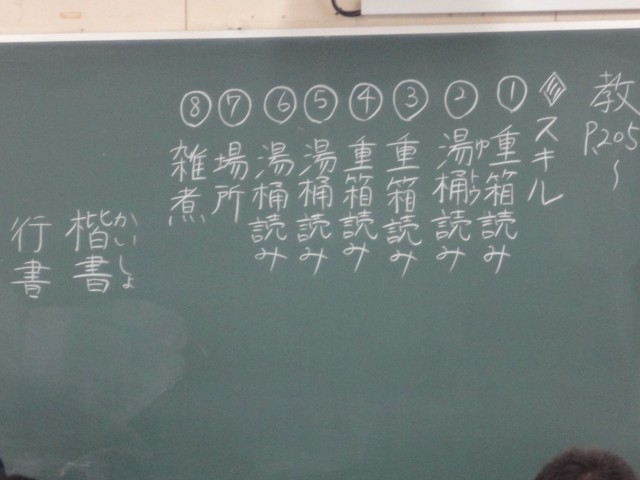 教P.205~
◇スキル
①重箱読み
②湯桶読み
ゆとう
③重箱読み
④重箱読み
⑤湯桶読み
⑥湯桶読み
⑦場所
⑧雑煮
かいしょ
楷書
行書